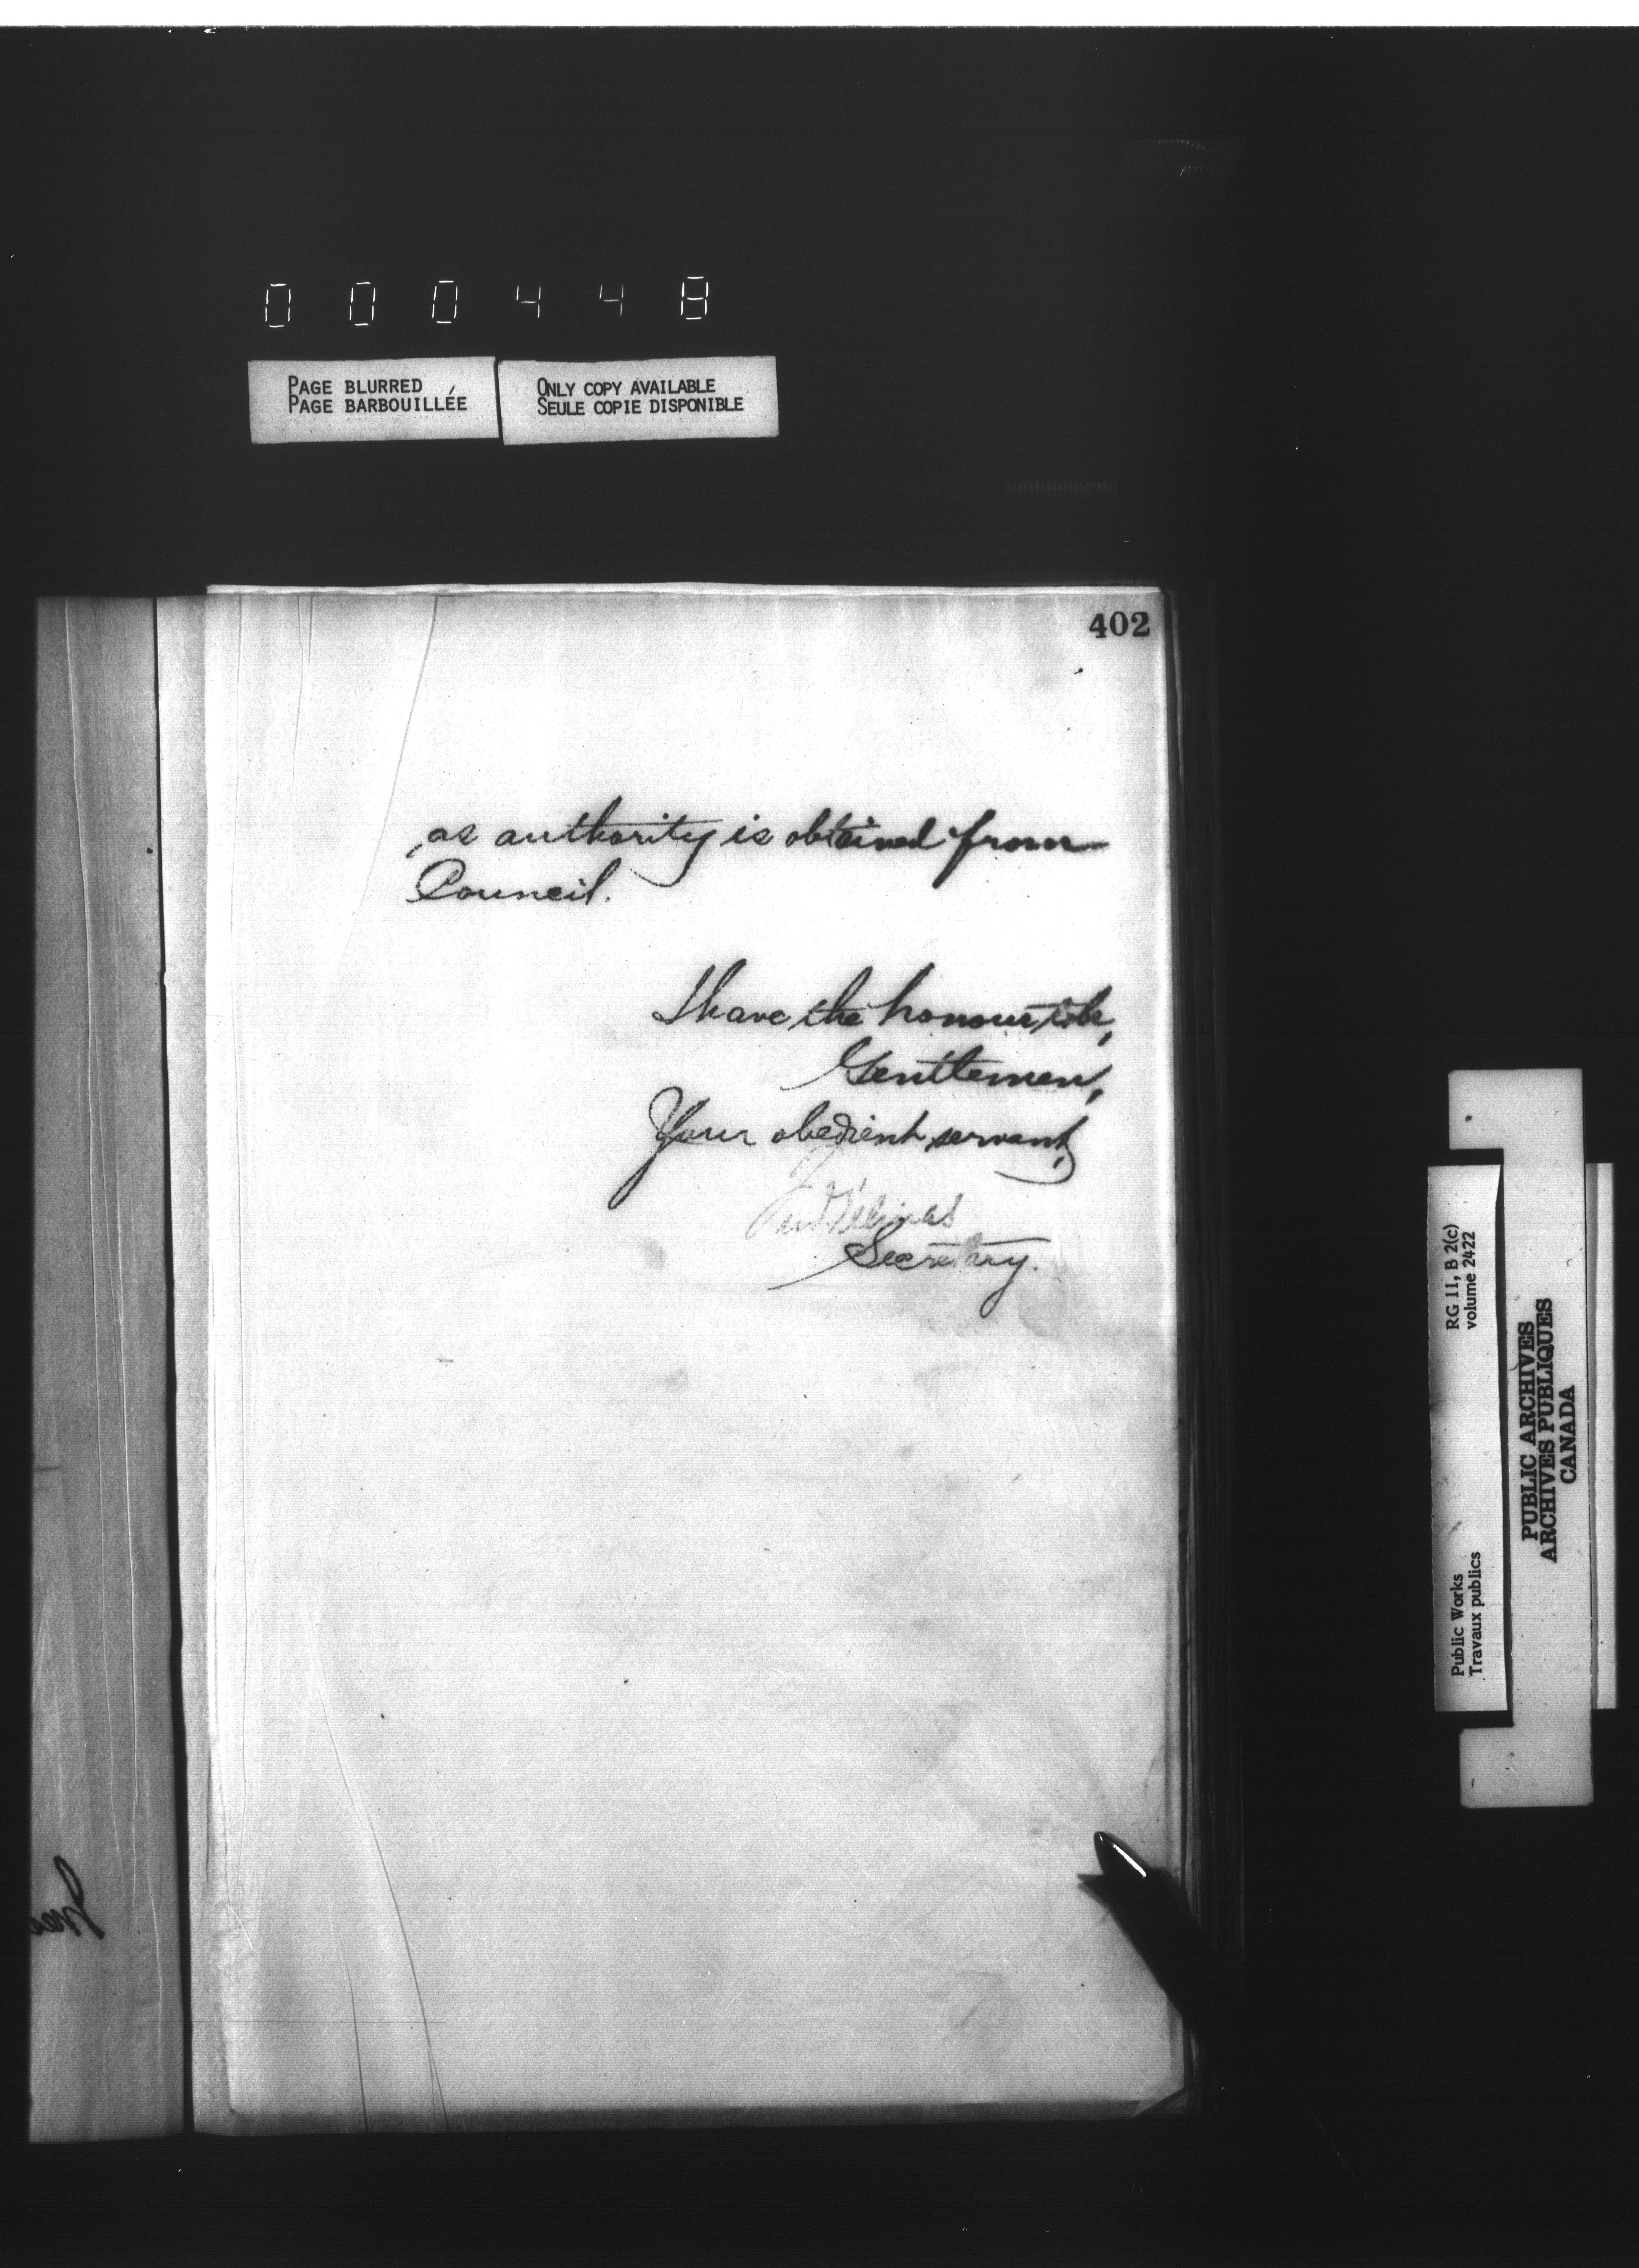 000448
PAGE BLURRED
PAGE BARBOUILLÉE
ONLY COPY AVAILABLE
SEULE COPIE DISPONIBLE
402
as authority is obtained from
Council.
I have the honour to be,
Gentlemen,
Your obedient servant,
Gélinas
Secretary.
RG 11, B 2(c)
volume 2422
Public Works
Travaux publics
PUBLIC ARCHIVES
ARCHIVES PUBLIQUES
CANADA